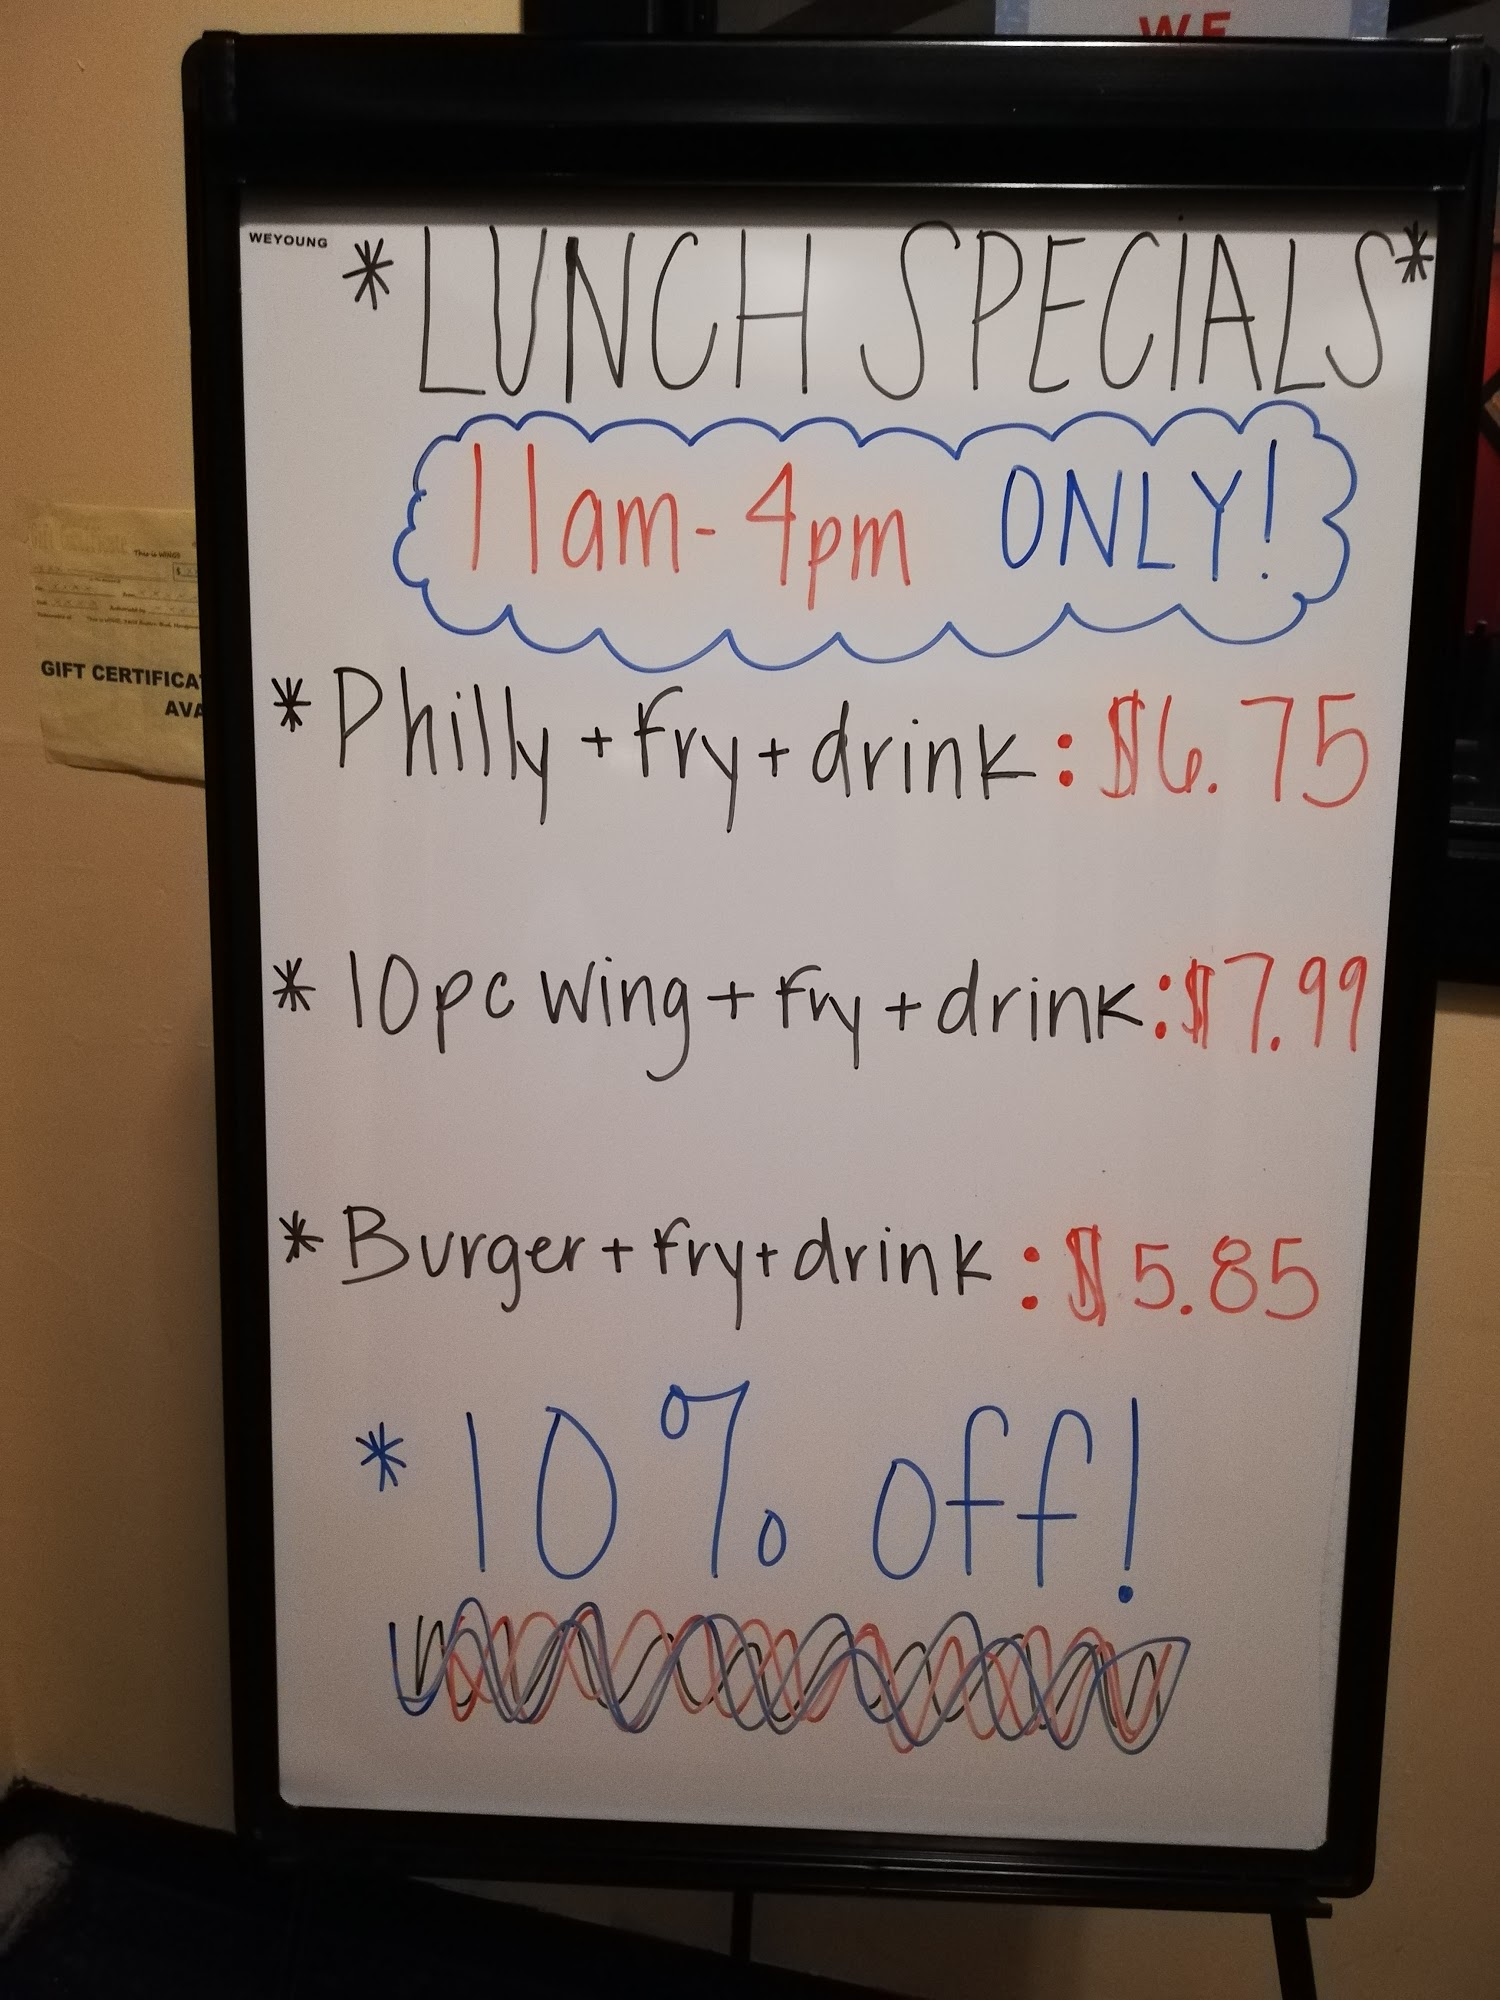 WE
WEYOUNG
*LUNCH SPECIALS*
11am-4pm ONLY!
*Philly+fry+drink:$6.75
*10pc wing+fry+drink:$7.99
*Burger+fry+drink:$5.85
*10% off!
This is WINGS
$
GIFT CERTIFICA
AVA